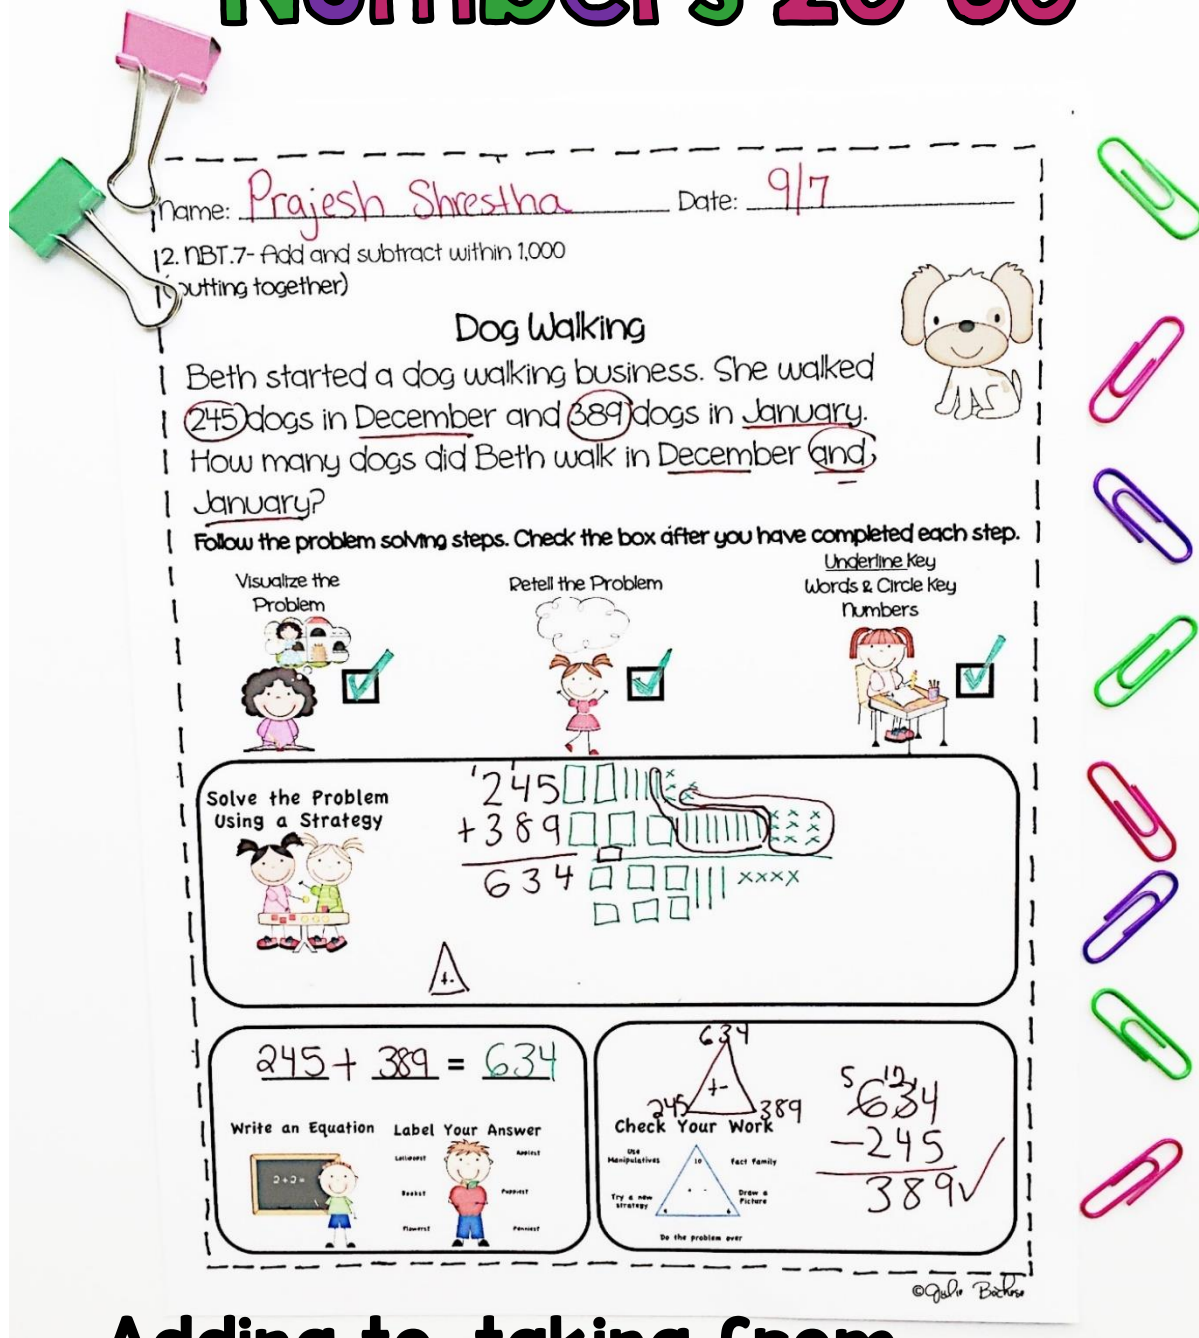 Numbers 20-30
Name: Prajesh Shrestha Date: 9/7
2.NBT.7- Add and subtract within 1,000
(putting together)
Dog Walking
Beth started a dog walking business. She walked
245 dogs in December and 389 dogs in January.
How many dogs did Beth walk in December and
January?
Follow the problem solving steps. Check the box after you have completed each step.
Visualize the
Problem
Retell the Problem
Underline Key
Words & Circle Key
Numbers
Solve the Problem
Using a Strategy
1 1
245
+389
634
xxxx
+-
245 + 389 = 634
Write an Equation Label Your Answer
2+2=
Lollipops?
Apples?
Books?
Puppies?
Flowers?
Pennies?
634
+-
245 389
Check Your Work
Use
Manipulatives
10
Fact Family
Try a new
strategy
Draw a
Picture
Do the problem over
5 12 1
634
-245
389
©Julie Bochese
Adding to, taking from